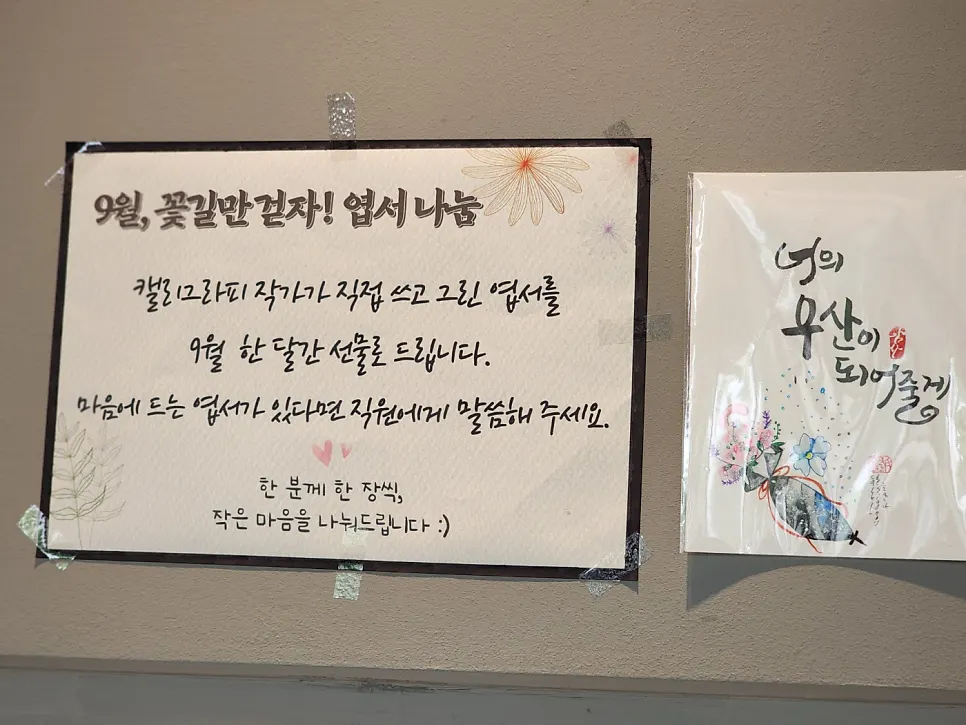 9월, 꽃길만 걷자! 엽서 나눔
캘리그라피 작가가 직접 쓰고 그린 엽서를
9월 한 달간 선물로 드립니다.
마음에 드는 엽서가 있다면 직원에게 말씀해 주세요.
한 분께 한 장씩,
작은 마음을 나눠드립니다 :)
너의
우산이
되어줄게